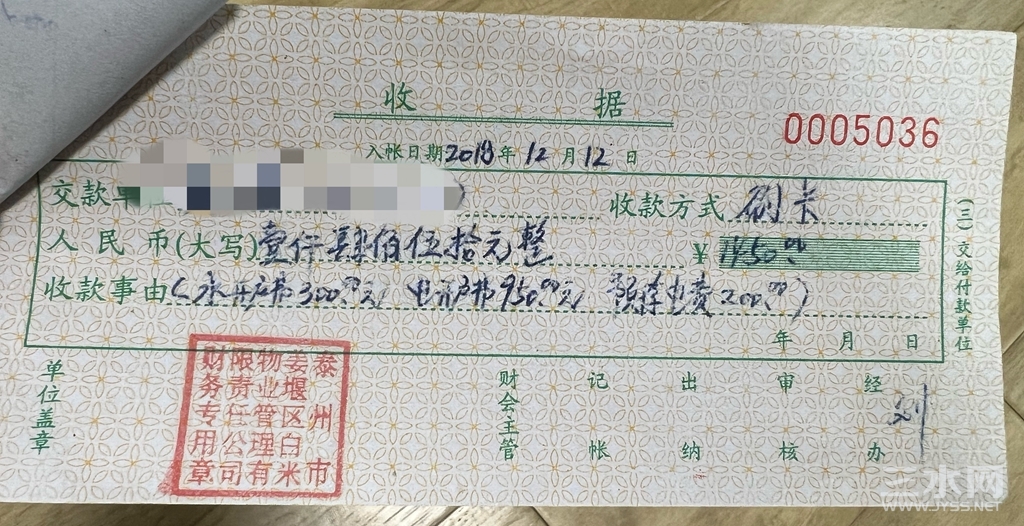 收据
0005036
入帐日期2018年12月12日
交款单位
收款方式 刷卡
人民币(大写)壹仟肆佰伍拾元整
¥1450.00
收款事由(水开户费300.00元 电开户费950.00元 预存电费200.00)
年 月 日
(三)交给付款单位
单位盖章
泰州市
姜堰区白米
物业管理有
限责任公司
财务专用章
财会主管 记帐 出纳 审核 经办 刘
三水网
WWW.JYSS.NET